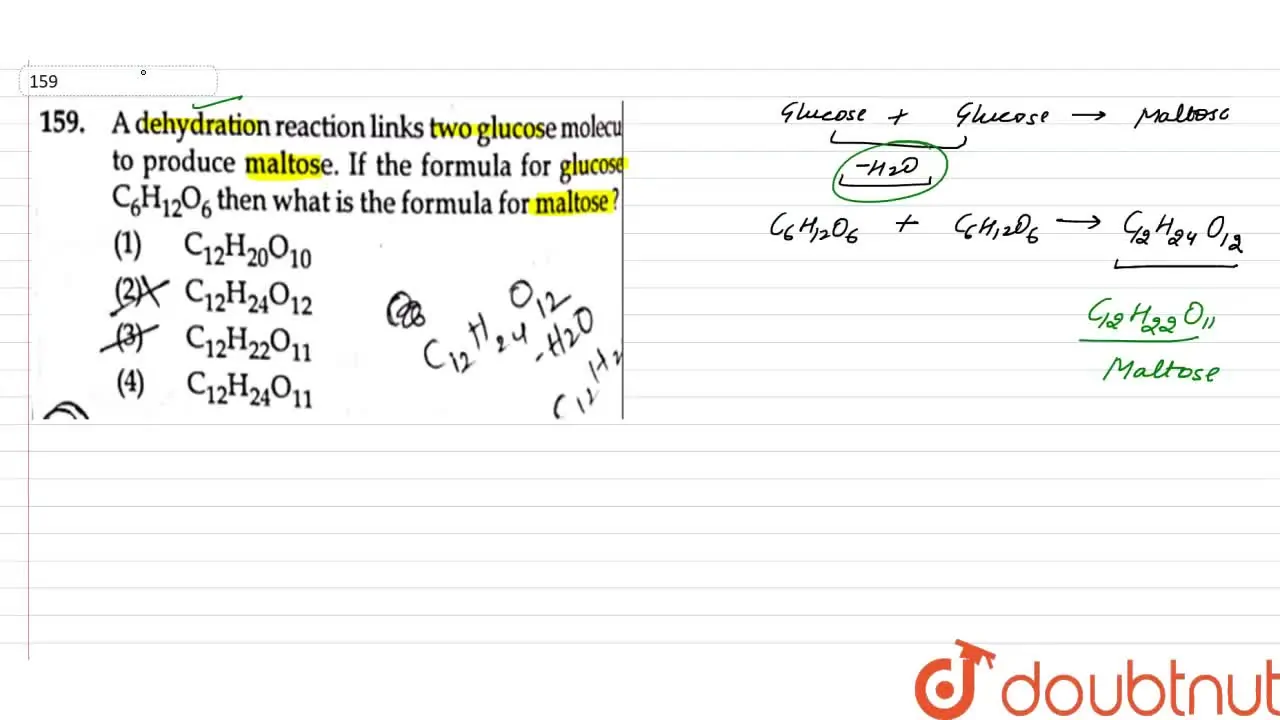 159
159. A dehydration reaction links two glucose molecu
to produce maltose. If the formula for glucose
C₆H₁₂O₆ then what is the formula for maltose?
(1) C₁₂H₂₀O₁₀
(2) C₁₂H₂₄O₁₂
(3) C₁₂H₂₂O₁₁
(4) C₁₂H₂₄O₁₁
C₁₂H₂₄O₁₂
-H₂O
C₁₂H₂
Glucose + Glucose → Maltose
-H₂O
C₆H₁₂O₆ + C₆H₁₂O₆ → C₁₂H₂₄O₁₂
C₁₂H₂₂O₁₁
Maltose
doubtnut